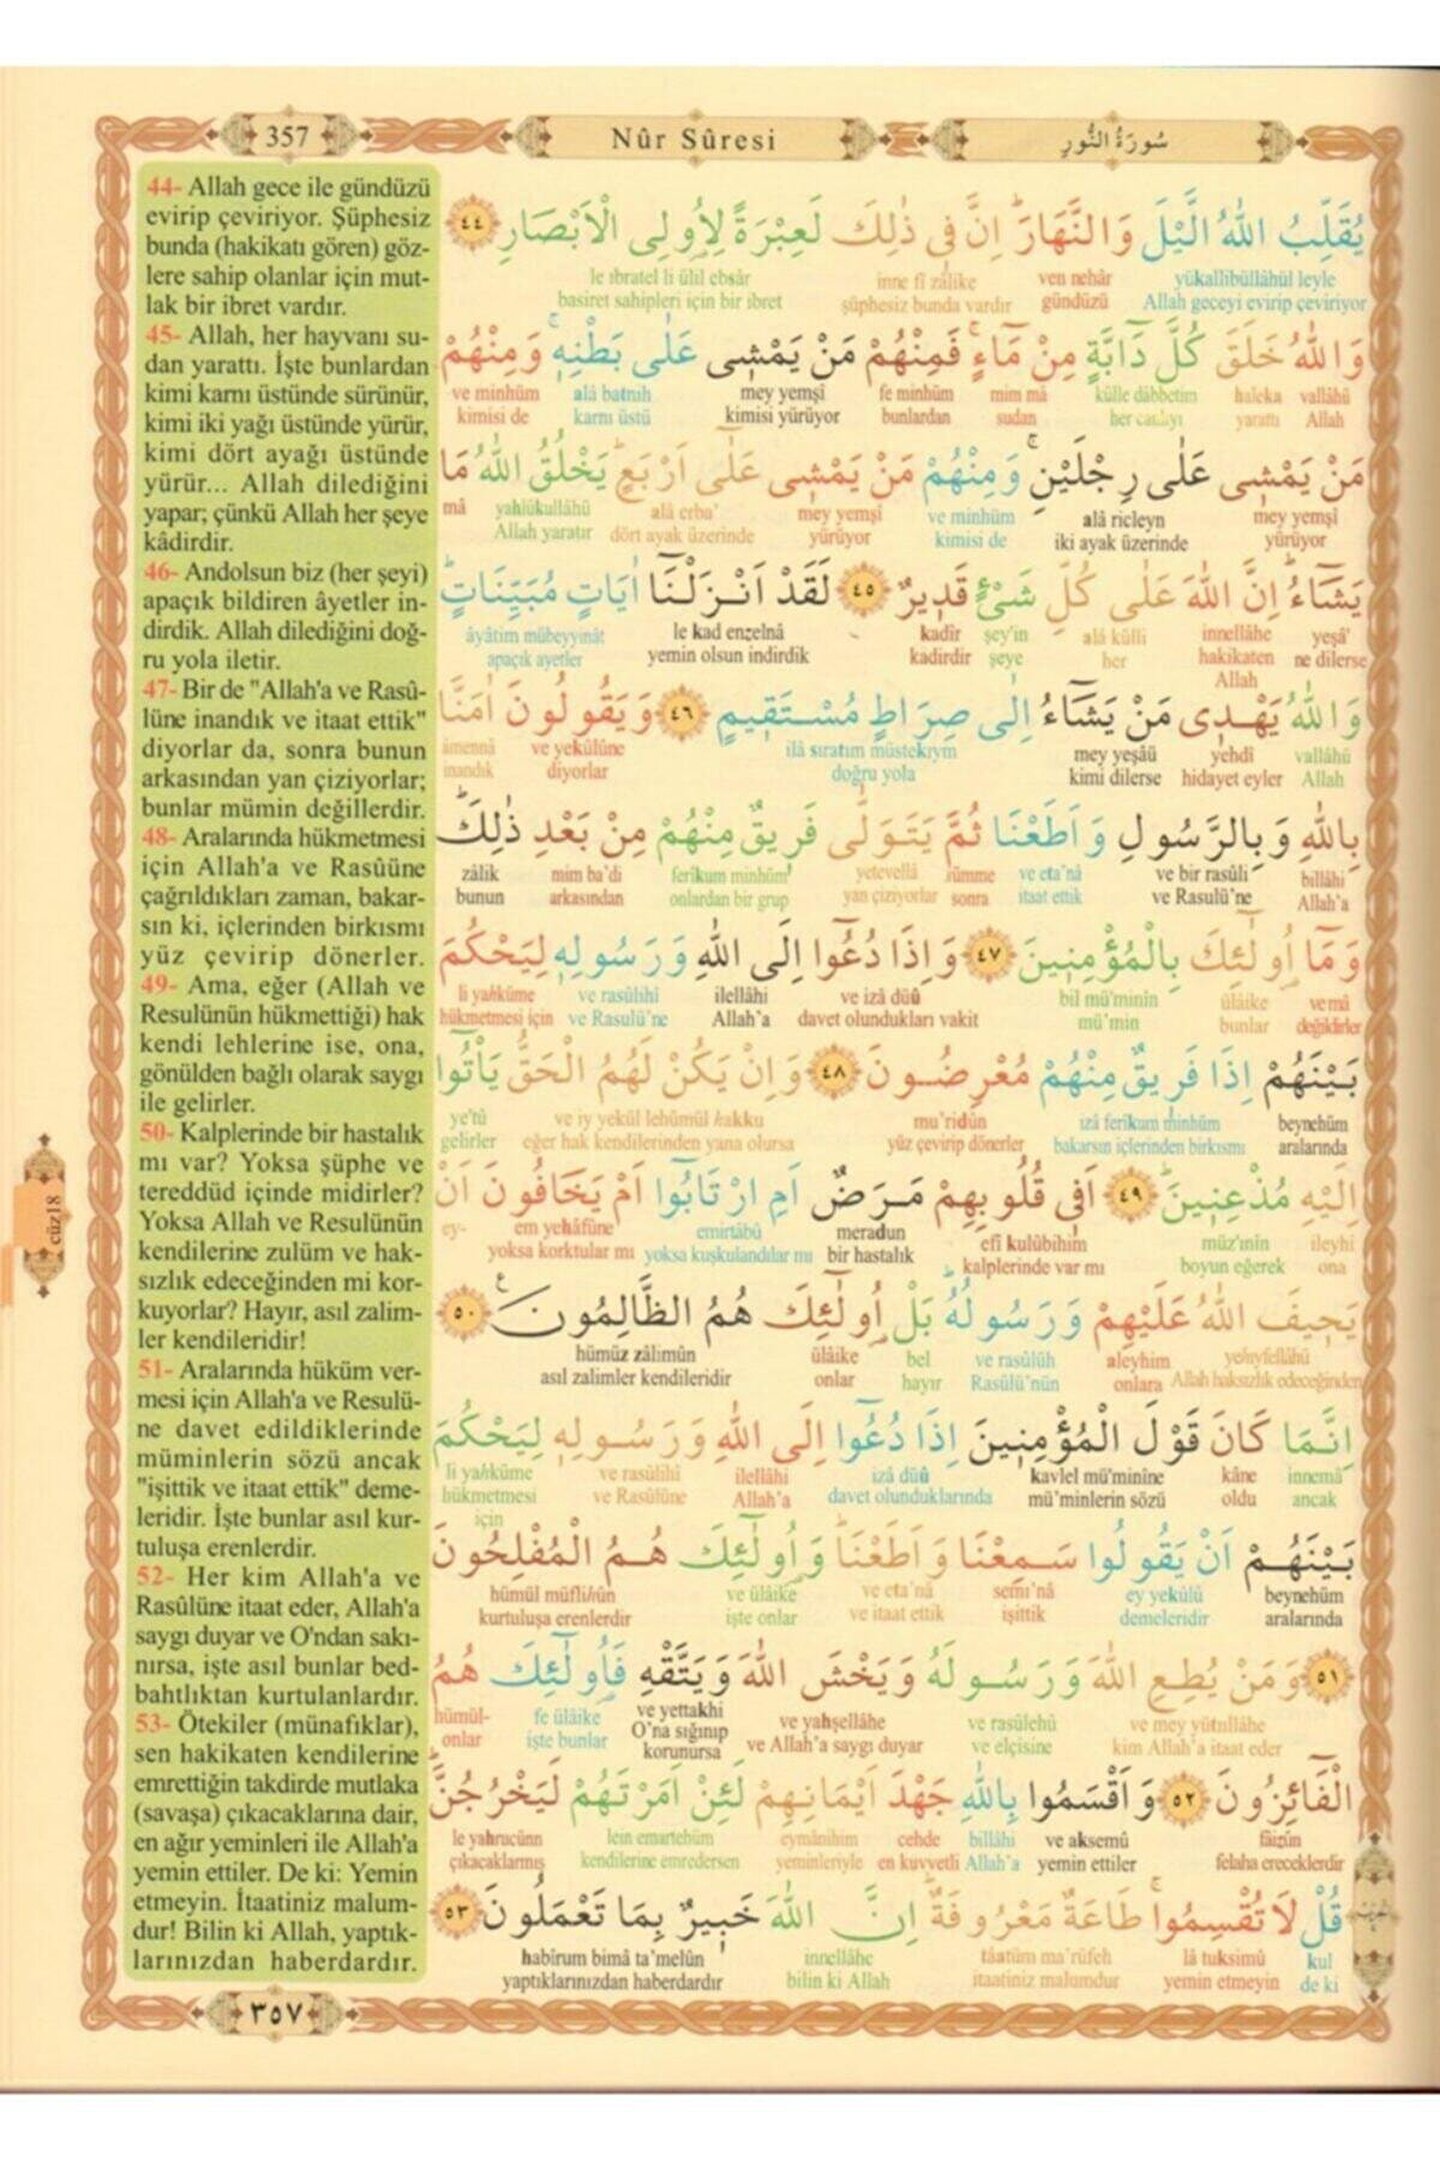 357
Nûr Sûresi
سُورَةُ النُّورِ
44- Allah gece ile gündüzü
evirip çeviriyor. Şüphesiz
bunda (hakikatı gören) göz-
lere sahip olanlar için mut-
lak bir ibret vardır.
45- Allah, her hayvanı su-
dan yarattı. İşte bunlardan
kimi karnı üstünde sürünür,
kimi iki yağı üstünde yürür,
kimi dört ayağı üstünde
yürür... Allah dilediğini
yapar; çünkü Allah her şeye
kâdirdir.
46- Andolsun biz (her şeyi)
apaçık bildiren âyetler in-
dirdik. Allah dilediğini doğ-
ru yola iletir.
47- Bir de "Allah'a ve Rasû-
lüne inandık ve itaat ettik"
diyorlar da, sonra bunun
arkasından yan çiziyorlar;
bunlar mümin değillerdir.
48- Aralarında hükmetmesi
için Allah'a ve Rasûüne
çağrıldıkları zaman, bakar-
sın ki, içlerinden birkısmı
yüz çevirip dönerler.
49- Ama, eğer (Allah ve
Resulünün hükmettiği) hak
kendi lehlerine ise, ona,
gönülden bağlı olarak saygı
ile gelirler.
50- Kalplerinde bir hastalık
mı var? Yoksa şüphe ve
tereddüd içinde midirler?
Yoksa Allah ve Resulünün
kendilerine zulüm ve hak-
sızlık edeceğinden mi kor-
kuyorlar? Hayır, asıl zalim-
ler kendileridir!
51- Aralarında hüküm ver-
mesi için Allah'a ve Resulü-
ne davet edildiklerinde
müminlerin sözü ancak
"işittik ve itaat ettik" deme-
leridir. İşte bunlar asıl kur-
tuluşa erenlerdir.
52- Her kim Allah'a ve
Rasûlüne itaat eder, Allah'a
saygı duyar ve O'ndan sakı-
nırsa, işte asıl bunlar bed-
bahtlıktan kurtulanlardır.
53- Ötekiler (münafıklar),
sen hakikaten kendilerine
emrettiğin takdirde mutlaka
(savaşa) çıkacaklarına dair,
en ağır yeminleri ile Allah'a
yemin ettiler. De ki: Yemin
etmeyin. İtaatiniz malum-
dur! Bilin ki Allah, yaptık-
larınızdan haberdardır.
يُقَلِّبُ اللّٰهُ الَّيْلَ وَالنَّهَارَۜ اِنَّ ف۪ي ذٰلِكَ لَعِبْرَةً لِاُو۬لِي الْاَبْصَارِ ﴿٤٤﴾
yükallibüllâhül leyle ven nehâr inne fî zâlike le ibratel li ülil ebsâr
Allah geceyi evirip çeviriyor gündüzü şüphesiz bunda vardır basiret sahipleri için bir ibret
وَاللّٰهُ خَلَقَ كُلَّ دَٓابَّةٍ مِنْ مَٓاءٍۚ فَمِنْهُمْ مَنْ يَمْش۪ي عَلٰى بَطْنِه۪ۚ وَمِنْهُمْ
vallâhü haleka külle dâbbetim mim mâ fe minhüm mey yemşî alâ batnih ve minhüm
Allah yarattı her canlıyı sudan bunlardan kimisi yürüyor karnı üstü kimisi de
مَنْ يَمْش۪ي عَلٰى رِجْلَيْنِۚ وَمِنْهُمْ مَنْ يَمْش۪ي عَلٰٓى اَرْبَعٍۜ يَخْلُقُ اللّٰهُ مَا
mey yemşî alâ ricleyn ve minhüm mey yemşî alâ erba' yahlükullâhü mâ
yürüyor iki ayak üzerinde kimisi de yürüyor dört ayak üzerinde Allah yaratır
يَشَٓاءُۜ اِنَّ اللّٰهَ عَلٰى كُلِّ شَيْءٍ قَد۪يرٌ ﴿٤٥﴾ لَقَدْ اَنْزَلْنَٓا اٰيَاتٍ مُبَيِّنَاتٍۜ
yeşâ' innellâhe alâ külli şey'in kadîr le kad enzelnâ âyâtim mübeyyinât
ne dilerse hakikaten her şeye kadirdir yemin olsun indirdik apaçık ayetler
Allah
وَاللّٰهُ يَهْد۪ي مَنْ يَشَٓاءُ اِلٰى صِرَاطٍ مُسْتَق۪يمٍ ﴿٤٦﴾ وَيَقُولُونَ اٰمَنَّا
vallâhü yehdî mey yeşâü ilâ sıratım müstekıym ve yekûlûne âmennâ
Allah hidayet eyler kimi dilerse doğru yola diyorlar inandık
بِاللّٰهِ وَبِالرَّسُولِ وَاَطَعْنَا ثُمَّ يَتَوَلّٰى فَر۪يقٌ مِنْهُمْ مِنْ بَعْدِ ذٰلِكَۜ
billâhi ve bir rasûli ve eta'nâ sümme yetevellâ ferîkum minhüm mim ba'di zâlik
Allah'a ve Rasulü'ne itaat ettik sonra yan çiziyorlar onlardan bir grup arkasından bunun
وَمَٓا اُو۬لٰٓئِكَ بِالْمُؤْمِن۪ينَ ﴿٤٧﴾ وَاِذَا دُعُٓوا اِلَى اللّٰهِ وَرَسُولِه۪ لِيَحْكُمَ
ve mâ ülâike bil mü'minîn ve izâ düû ilellâhi ve rasûlihî li yahküme
değildirler bunlar mü'min davet olundukları vakit Allah'a ve Rasulü'ne hükmetmesi için
بَيْنَهُمْ اِذَا فَر۪يقٌ مِنْهُمْ مُعْرِضُونَ ﴿٤٨﴾ وَاِنْ يَكُنْ لَهُمُ الْحَقُّ يَأْتُٓوا
beynehüm izâ ferîkum minhüm mu'ridûn ve iy yekül lehümül hakku ye'tû
aralarında bakarsın içlerinden birkısmı yüz çevirip dönerler eğer hak kendilerinden yana olursa gelirler
اِلَيْهِ مُذْعِن۪ينَۜ ﴿٤٩﴾ اَف۪ي قُلُوبِهِمْ مَرَضٌ اَمِ ارْتَابُٓوا اَمْ يَخَافُونَ اَنْ
ileyhi müz'ınîn efî kulûbihim meradun emirtâbû em yehâfûne ey-
ona boyun eğerek kalplerinde var mı bir hastalık yoksa kuşkulandılar mı yoksa korktular mı
يَح۪يفَ اللّٰهُ عَلَيْهِمْ وَرَسُولُهُۜ بَلْ اُو۬لٰٓئِكَ هُمُ الظَّالِمُونَ۟ ﴿٥٠﴾
yehıyfellâhü aleyhim ve rasûlüh bel ülâike hümüz zâlimûn
Allah haksızlık edeceğinden onlara Rasûlü'nün hayır onlar asıl zalimler kendileridir
اِنَّمَا كَانَ قَوْلَ الْمُؤْمِن۪ينَ اِذَا دُعُٓوا اِلَى اللّٰهِ وَرَسُولِه۪ لِيَحْكُمَ
innemâ kâne kavlel mü'minîne izâ düû ilellâhi ve rasûlihî li yahküme
ancak oldu mü'minlerin sözü davet olunduklarında Allah'a ve Rasûlüne hükmetmesi
için
بَيْنَهُمْ اَنْ يَقُولُوا سَمِعْنَا وَاَطَعْنَاۜ وَاُو۬لٰٓئِكَ هُمُ الْمُفْلِحُونَ
beynehüm ey yekûlû semi'nâ ve eta'nâ ve ülâike hümül müflihûn
aralarında demeleridir işittik ve itaat ettik işte onlar kurtuluşa erenlerdir
﴿٥١﴾ وَمَنْ يُطِعِ اللّٰهَ وَرَسُولَهُ وَيَخْشَ اللّٰهَ وَيَتَّقْهِ فَاُو۬لٰٓئِكَ هُمُ
ve mey yütıılâhe ve rasûlehû ve yahşellâhe ve yettakhi fe ülâike hümül-
kim Allah'a itaat eder ve elçisine ve Allah'a saygı duyar O'na sığınıp işte bunlar onlar
korunursa
الْفَٓائِزُونَ ﴿٥٢﴾ وَاَقْسَمُوا بِاللّٰهِ جَهْدَ اَيْمَانِهِمْ لَئِنْ اَمَرْتَهُمْ لَيَخْرُجُنَّۜ
fâizûn ve aksemû billâhi cehde eymânihim lein emartehüm le yahrucünn
felaha ereceklerdir yemin ettiler Allah'a en kuvvetli yeminleriyle kendilerine emredersen çıkacaklarmış
قُلْ لَا تُقْسِمُواۚ طَاعَةٌ مَعْرُوفَةٌۜ اِنَّ اللّٰهَ خَب۪يرٌ بِمَا تَعْمَلُونَ ﴿٥٣﴾
kul lâ tuksimû tâatüm ma'rûfeh innellâhe habîrum bimâ ta'melûn
de ki yemin etmeyin itaatiniz malumdur bilin ki Allah yaptıklarınızdan haberdardır
cüz18
٣٥٧